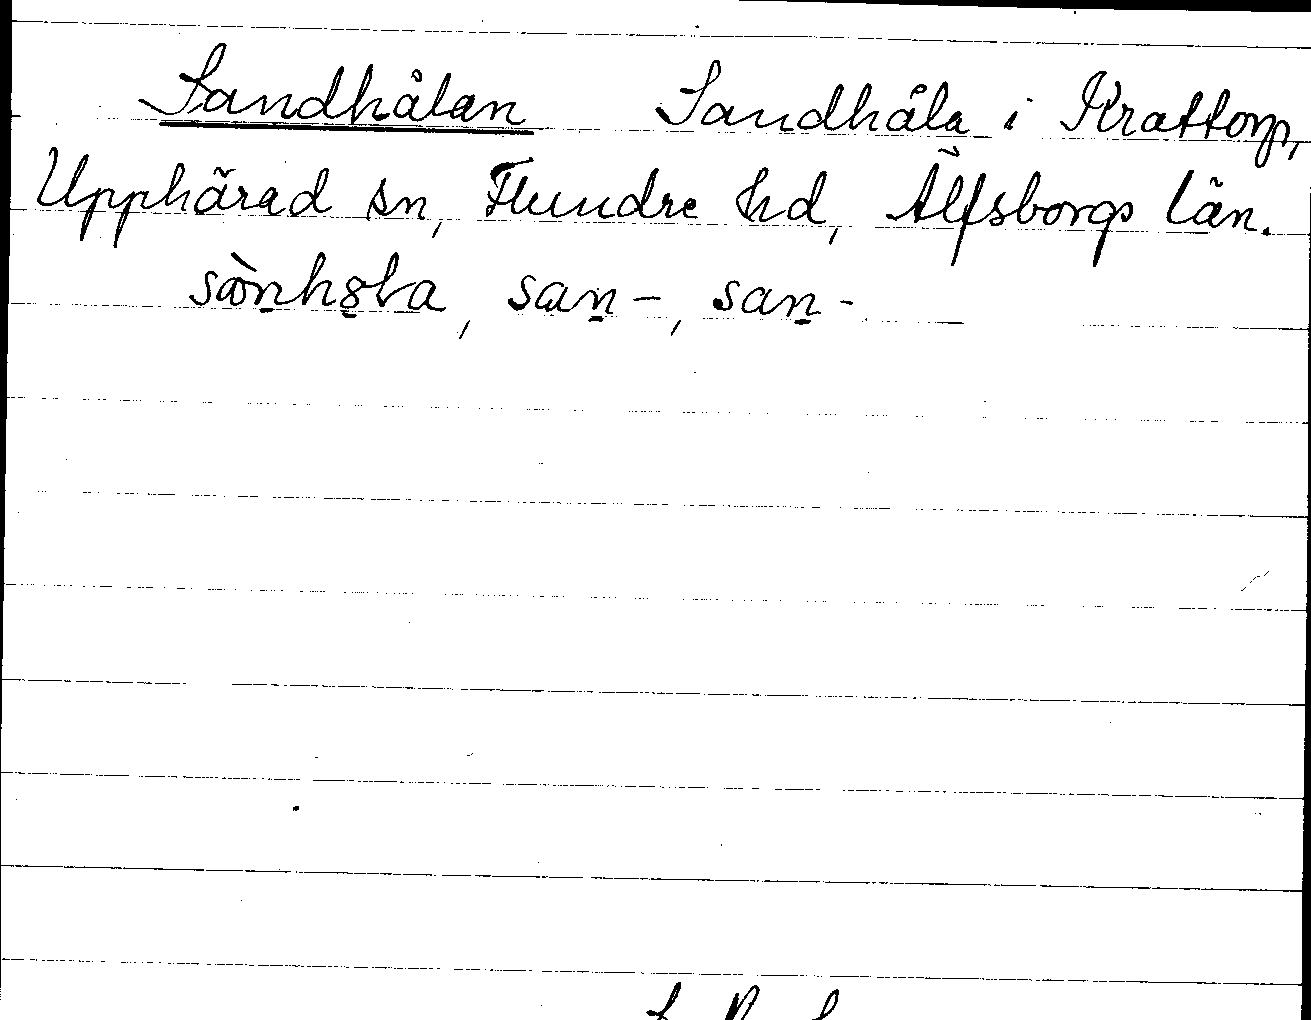 Sandhålan Sandhåla i Krattorp,
Upphärad sn, Flundre hd, Älfsborgs län.
san-, san-